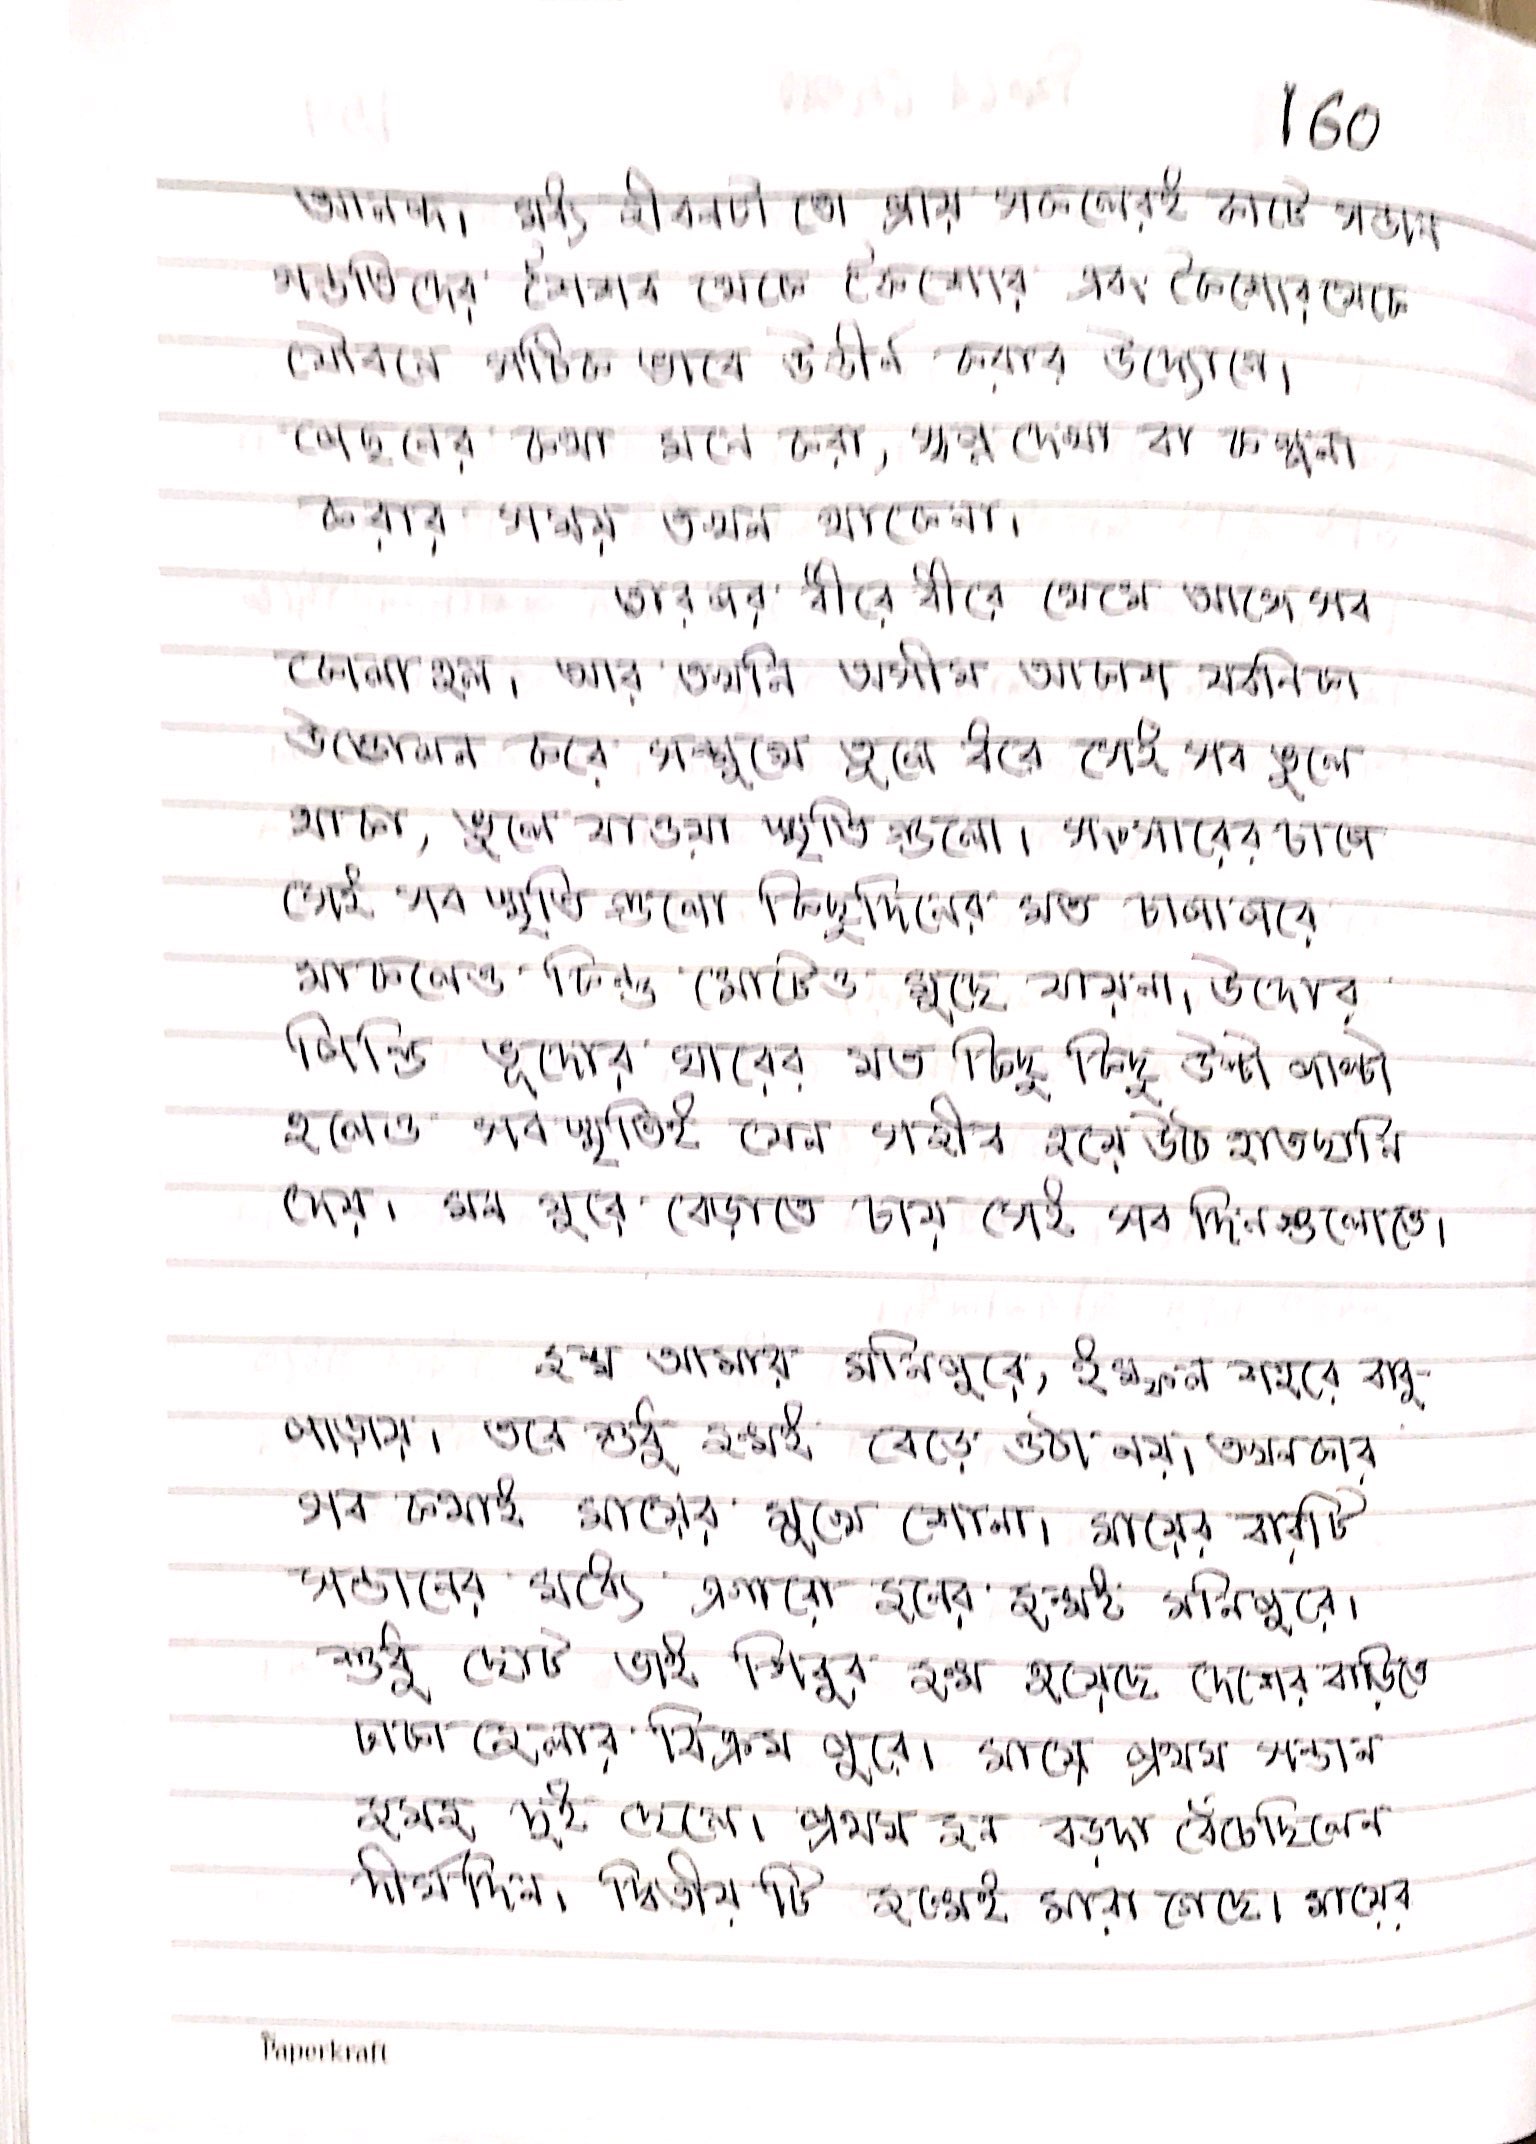 160
আনন্দ। মধ্য জীবনটা তো প্রায় সকলেরই কাটে সন্তান
সন্ততিদের শৈশব থেকে কৈশোর এবং কৈশোর থেকে
যৌবনে সঠিক ভাবে উত্তীর্ন করার উদ্যোগে।
পেছনের কথা মনে করা, স্বপ্ন দেখা বা কল্পনা
করার সময় তখন থাকেনা।
তারপর ধীরে ধীরে থেমে আসে সব
কোলাহল। আর তখনি অসীম আকাশ যবনিকা
উত্তোলন করে সম্মুখে তুলে ধরে সেই সব ভুলে
থাকা, ভুলে যাওয়া স্মৃতি গুলো। সংসারের চাপে
সেই সব স্মৃতি গুলো কিছুদিনের মত চাপা পরে
থাকলেও কিন্তু মোটেও মুছে যায়না। উদোর
পিন্ডি ভূদোর ঘারের মত কিছু কিছু উল্টা পাল্টা
হলেও সব স্মৃতিই যেন সজীব হয়ে উঠে হাতছানি
দেয়। মন ঘুরে বেড়াতে চায় সেই সব দিনগুলোতে।
জন্ম আমার মনিপুরে, ইম্ফল শহরে বাবু-
পাড়ায়। তবে শুধু জন্মই বেড়ে ওঠা নয়। তখনকার
সব কথাই মায়ের মুখে শোনা। মায়ের বারটি
সন্তানের মধ্যে এগারো জনের জন্মই মনিপুরে।
শুধু ছোট ভাই শিবুর জন্ম হয়েছে দেশের বাড়িতে
ঢাকা জেলার বিক্রম পুরে। মায়ে প্রথম সন্তান
জমজ দুই ছেলে। প্রথম জন বড়দা বেঁচেছিলেন
দীর্ঘদিন। দ্বিতীয় টি জন্মেই মারা গেছে। মায়ের
Paperkraft